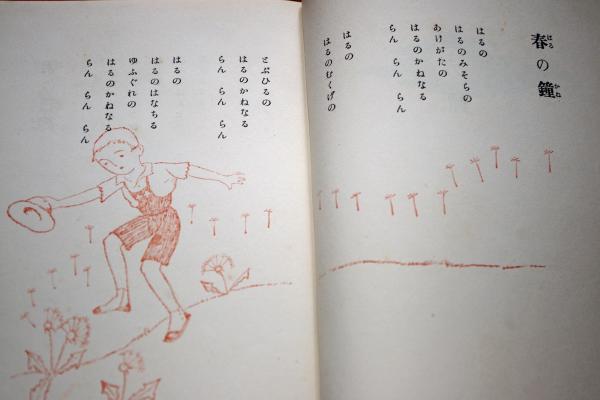 春の鐘
はる
かね
はるの
はるのみそらの
あけがたの
はるのかねなる
らん らん らん
はるの
はるのむくげの
とぶひるの
はるのかねなる
らん らん らん
はるの
はるのはなちる
ゆふぐれの
はるのかねなる
らん らん らん